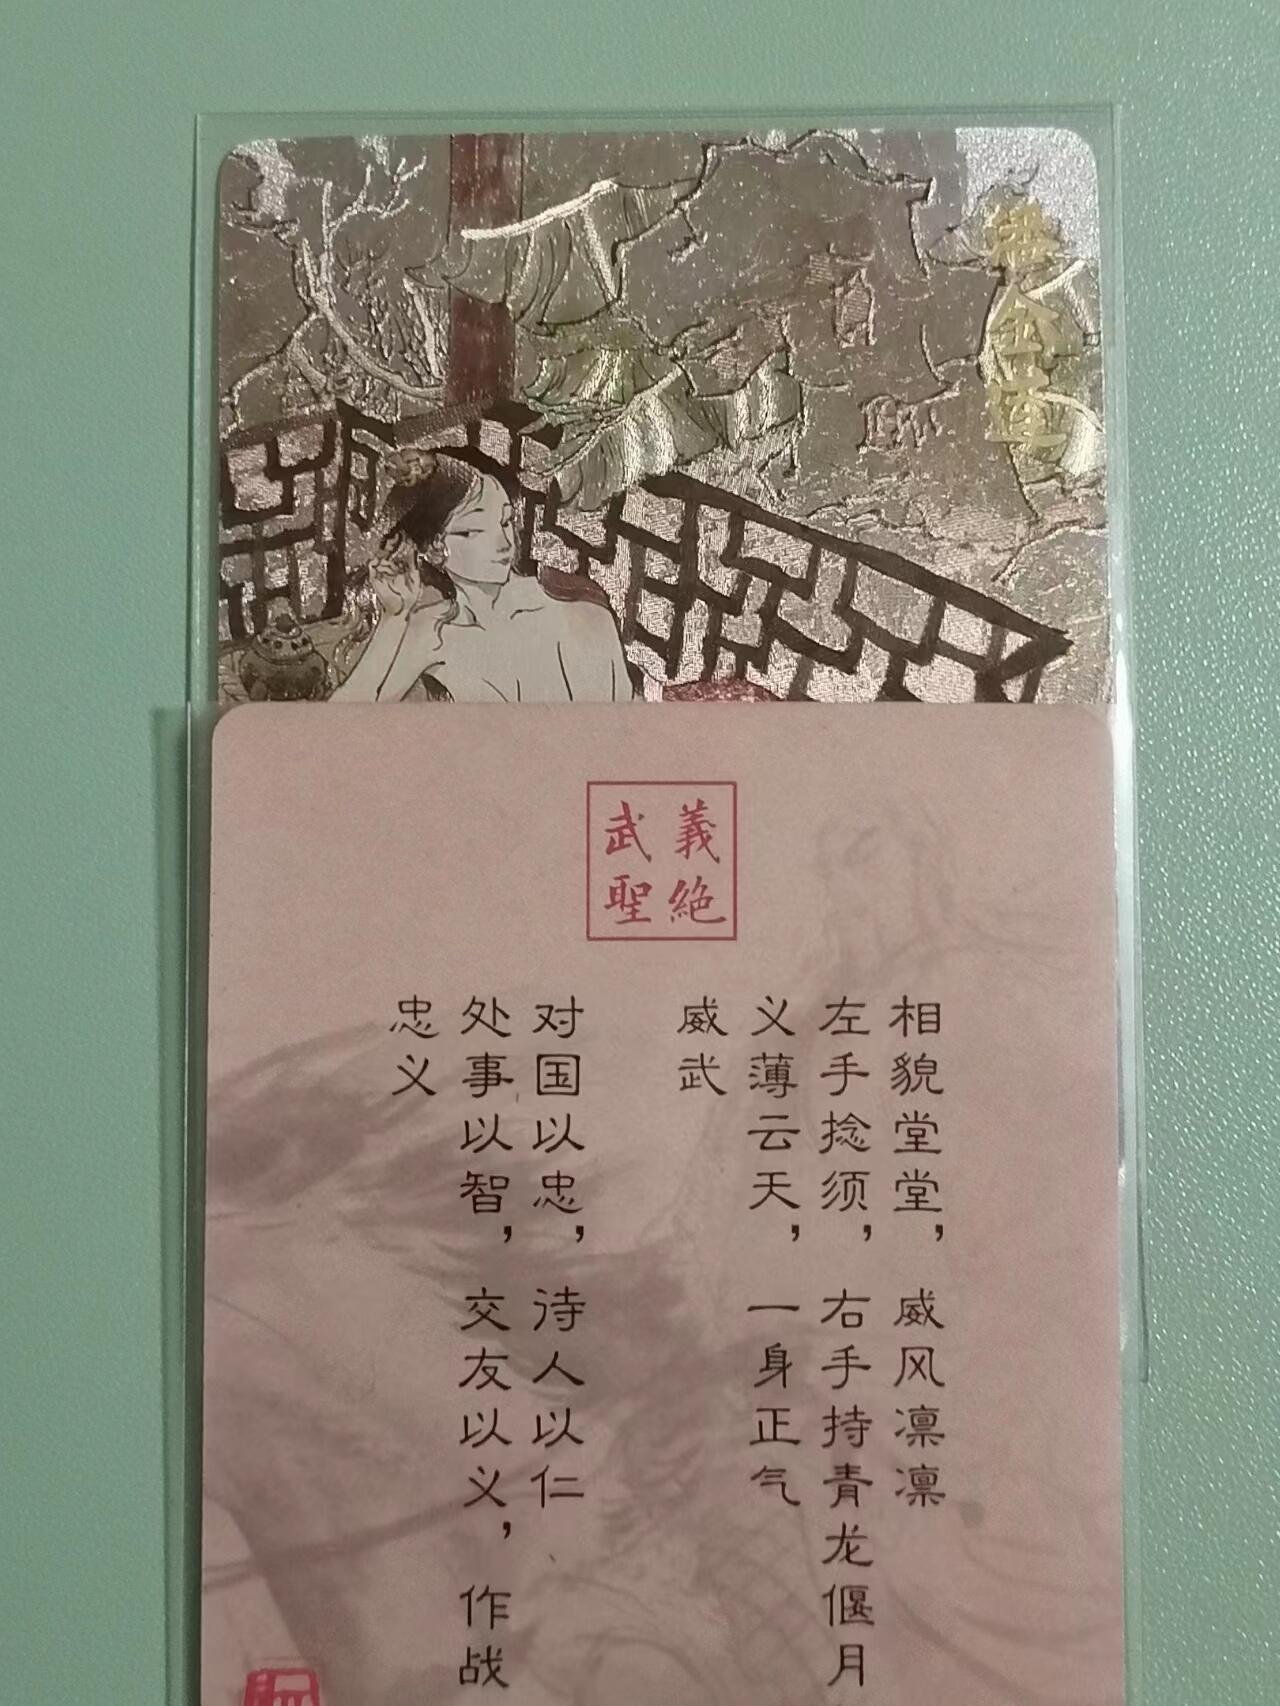 潘金莲
義絶
武聖
相貌堂堂，威风凛凛
左手捻须，右手持青龙偃月
义薄云天，一身正气
威武
对国以忠，待人以仁
处事以智，交友以义，作战
忠义